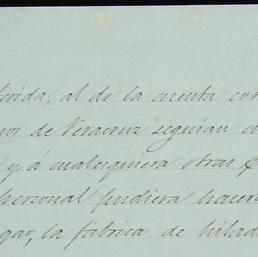 erida, al de la cuenta cor
nos de Veracruz seguian
y á cualesquiera otras
personal pudiera hacers
gar, la fábrica de hilad